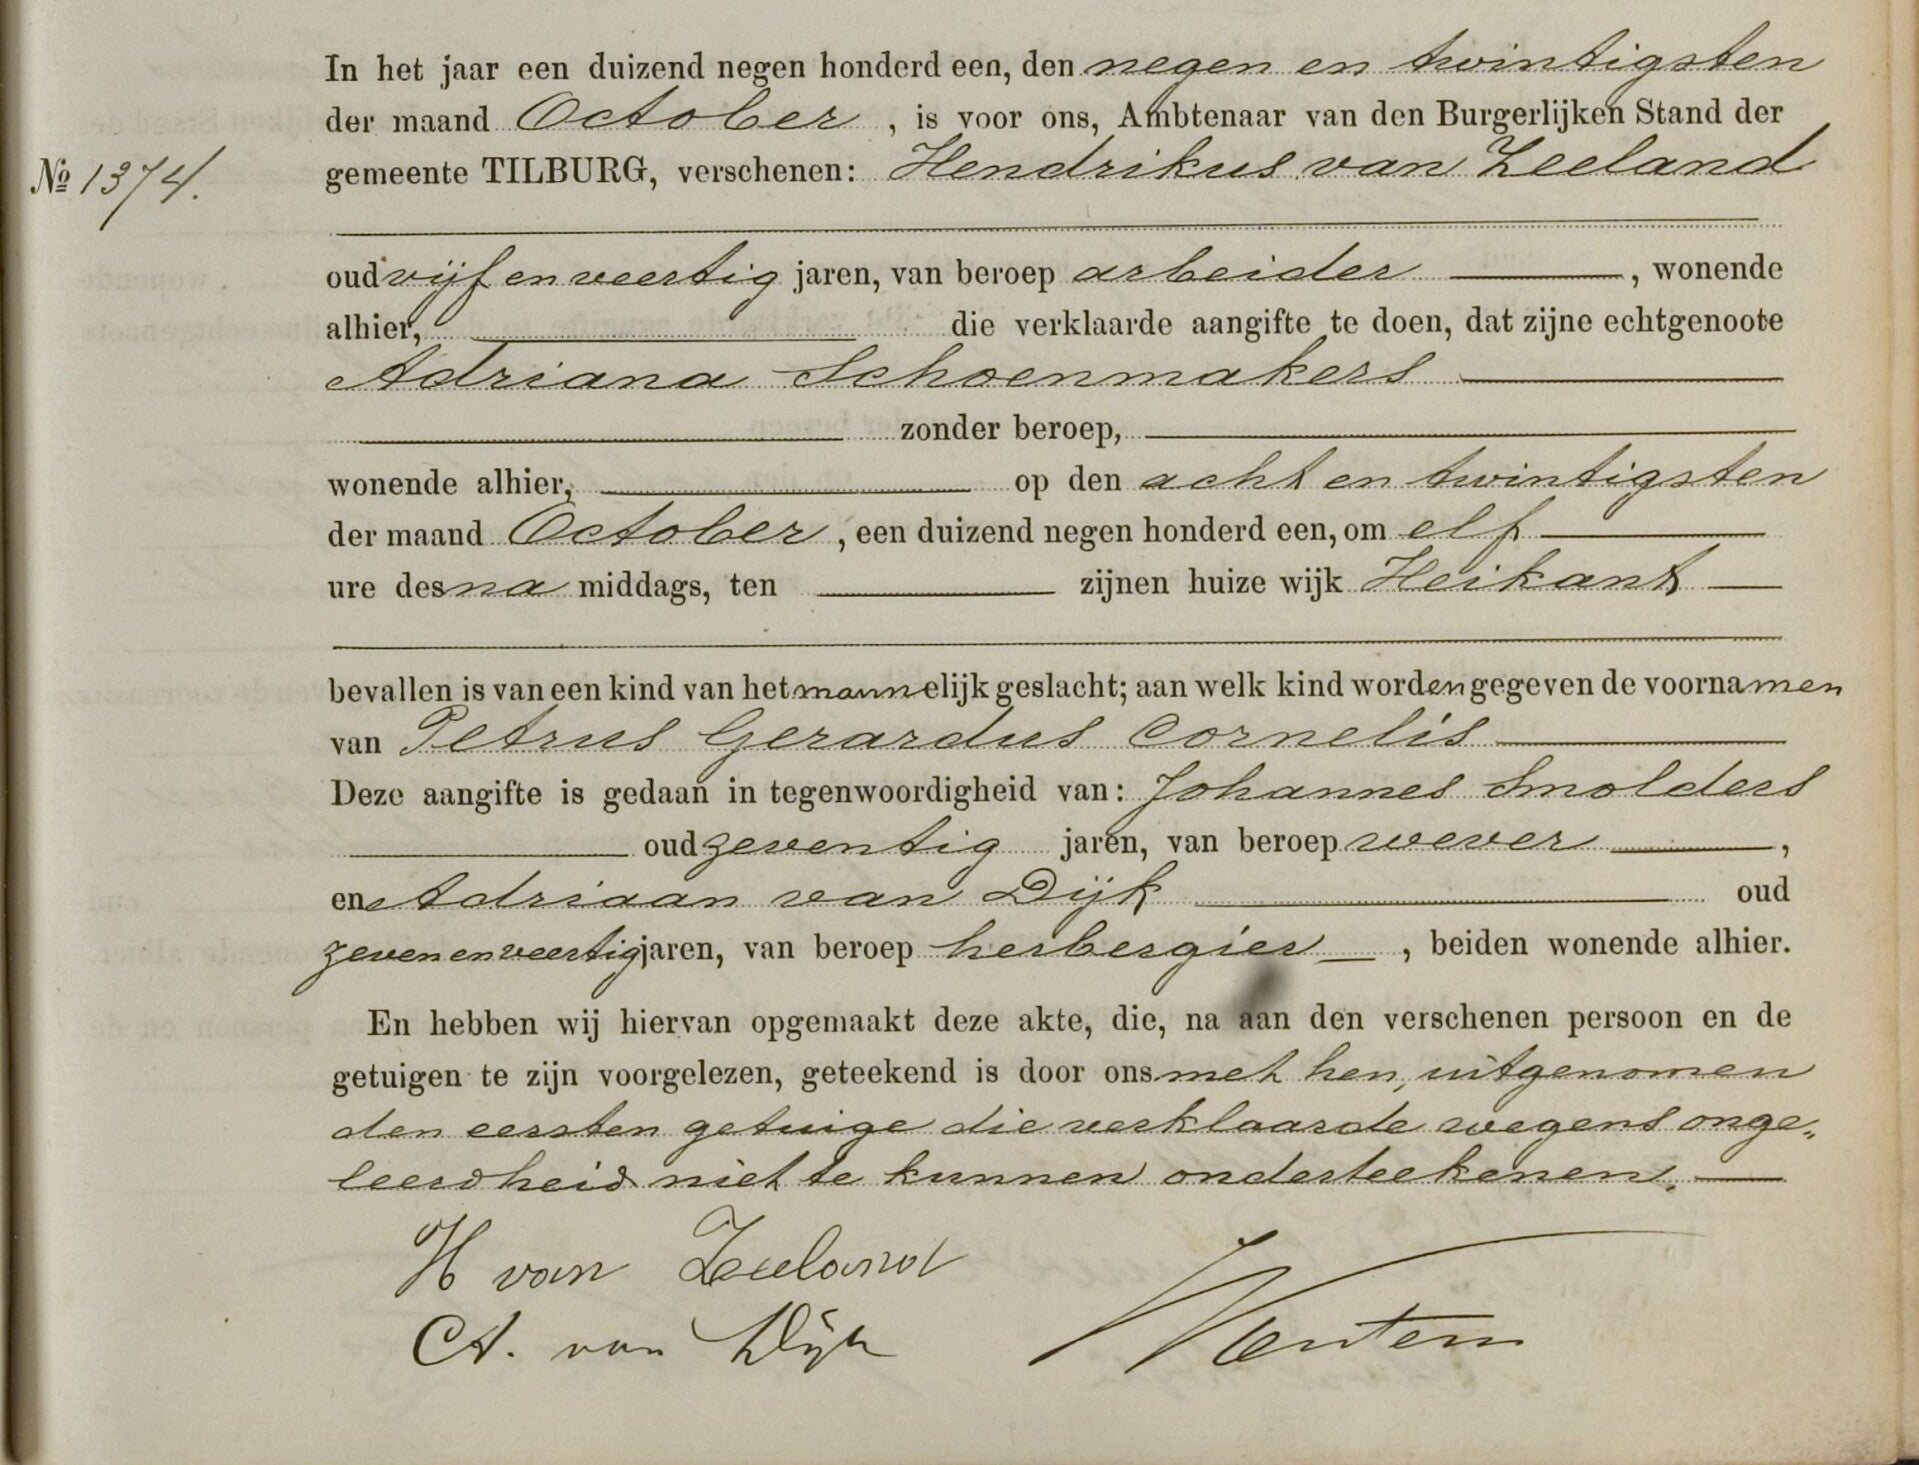 In het jaar een duizend negen honderd een, den negen en twintigsten
der maand October, is voor ons, Ambtenaar van den Burgerlijken Stand der
No 1374.
gemeente TILBURG, verschenen: Hendrikus van Zeeland
oud vijf en veertig jaren, van beroep arbeider, wonende
alhier, die verklaarde aangifte te doen, dat zijne echtgenoote
Adriana Schoenmakers
zonder beroep,
wonende alhier, op den acht en twintigsten
der maand October, een duizend negen honderd een, om elf
ure des na middags, ten zijnen huize wijk Heikant
bevallen is van een kind van het mannelijk geslacht; aan welk kind worden gegeven de voornamen
van Petrus Gerardus Cornelis
Deze aangifte is gedaan in tegenwoordigheid van: Johannes Smolders
oud zeventig jaren, van beroep wever,
en Adriaan van Dijk oud
zeven en veertig jaren, van beroep herbergier, beiden wonende alhier.
En hebben wij hiervan opgemaakt deze akte, die, na aan den verschenen persoon en de
getuigen te zijn voorgelezen, geteekend is door ons met hen, uitgenomen
den eersten getuige die verklaarde wegens onge„
leerdheid niet te kunnen onderteekenen.
H van Zeeland
A. van Dijk